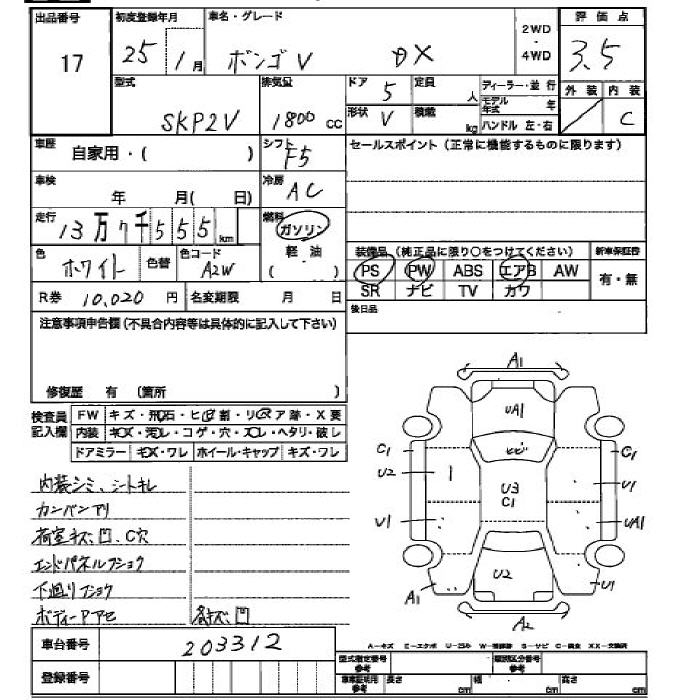 出品番号 初度登録年月 車名・グレード 2WD・4WD 評価点
17 25 1月 ボンゴV DX 3.5
型式 排気量 ドア 定員 ディーラー・並行 外装 内装
SKP2V 1800cc 5 人 モデル年式 年
形状 V 積載 kg ハンドル 左・右 C
車歴 自家用・( ) シフト F5 セールスポイント(正常に機能するものに限ります)
車検 年 月( 日) 冷房 AC
走行 13万7千555km 燃料 ガソリン
軽・油
・
( )
装備品(純正品に限り○をつけてください) 新車保証書
色 ホワイト 色替 色コード A2W
PS PW ABS エアB AW 有・無
SR ナビ TV カワ
R券 10,020円 名変期限 月 日
後日品
注意事項申告欄(不具合内容等は具体的に記入して下さい)
修復歴 有 (箇所 )
検査員記入欄 FW キズ・飛石・ヒビ割・リペア跡・X要
内装 キズ・汚レ・コゲ・穴・スレ・ヘタリ・破し
ドアミラー キズ・ワレ ホイール・キャップ キズ・ワレ
内装シミ、シートキレ
カンバンアリ
荷室キズ、凹、C穴
エンドパネルフショク
下廻リフショク
ボディーアセ 各キズ、凹
A1
UA1
C1 ヒビ C1
U2 U3 U1
C1
U1 UA1
U2
A1 U1
A2
A−キズ E−エクボ U−凹み W−補修跡 S−サビ C−腐食 XX−交換済
車台番号 203312
型式指定番号 参考 類別区分番号 参考
登録番号
車車証明用 参考 長さ cm 幅 cm 高さ cm